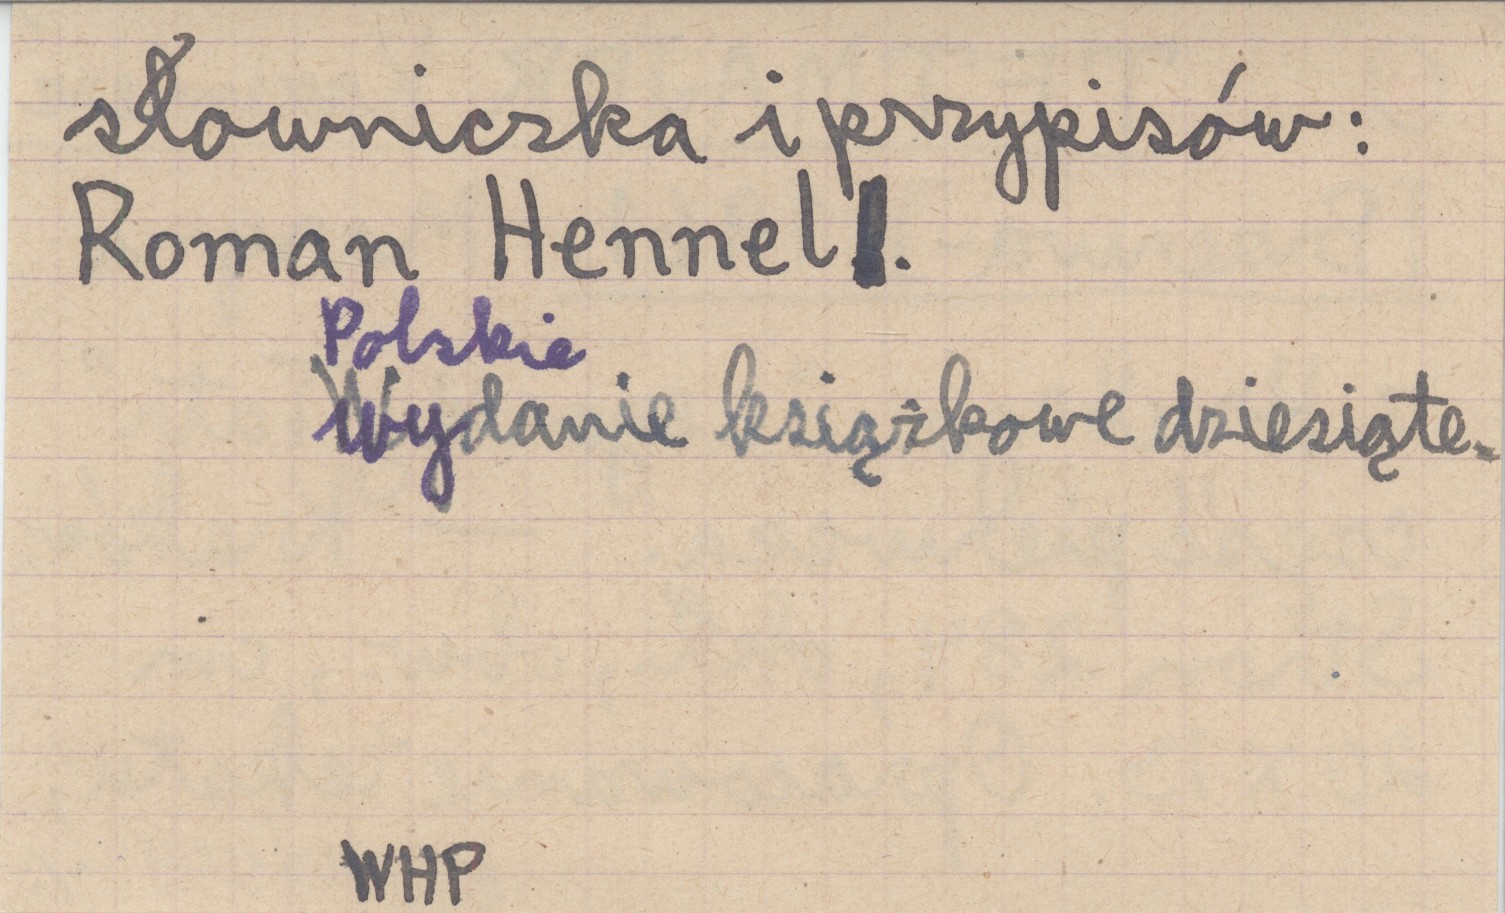 słowniczka i przypisów:
Roman Hennel.
Polskie
wydanie książkowe dziesiąte.
WHP